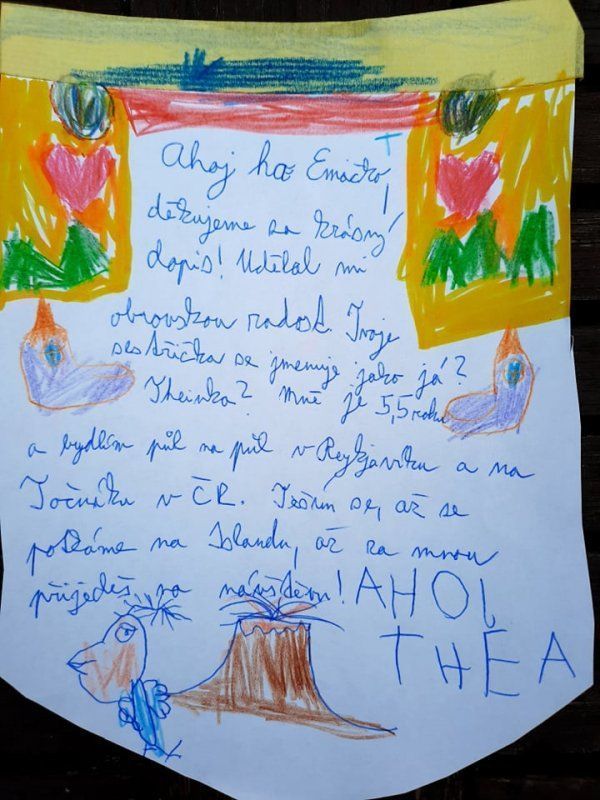 Ahoj Emičko,
děkujeme za krásný
dopis! Udělal mi
obrovskou radost. Tvoje
sestřička se jmenuje jako já?
Theinka? Mně je 5,5 roku
a bydlím půl na půl v Reykjavíku a na
Točníku v ČR. Těším se, až se
potkáme na Islandu, až za mnou
přijedeš na návštěvu! AHOJ
THEA